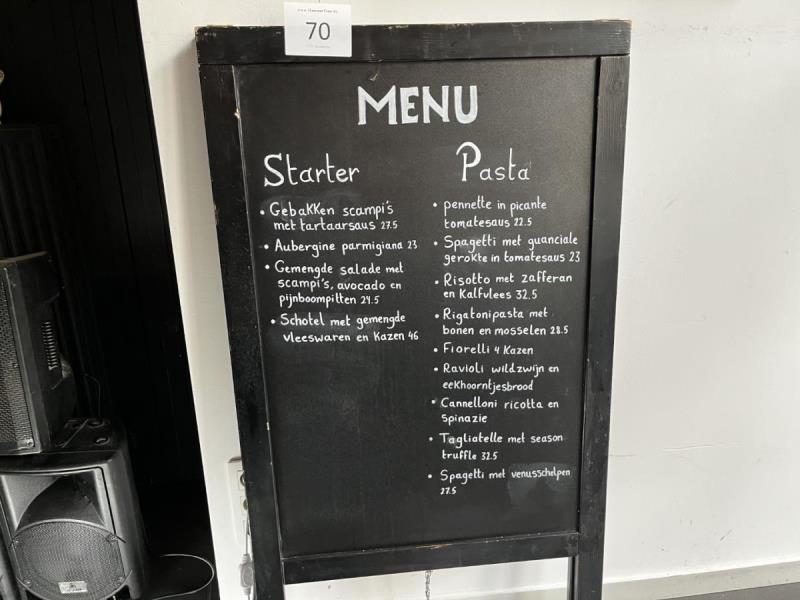 70
MENU
Starter
• Gebakken scampi's
met tartaarsaus 27.5
• Aubergine parmigiana 23
• Gemengde salade met
scampi's, avocado en
pijnboompitten 24.5
• Schotel met gemengde
vleeswaren en Kazen 46
Pasta
• pennette in picante
tomatesaus 22.5
• Spagetti met guanciale
gerokte in tomatesaus 23
• Risotto met zafferan
en Kalfvlees 32.5
• Rigatonipasta met
bonen en mosselen 28.5
• Fiorelli 4 Kazen
• Ravioli wildzwijn en
eekhoorntjesbrood
• Cannelloni ricotta en
spinazie
• Tagliatelle met season
truffle 32.5
• Spagetti met venusschelpen
27.5